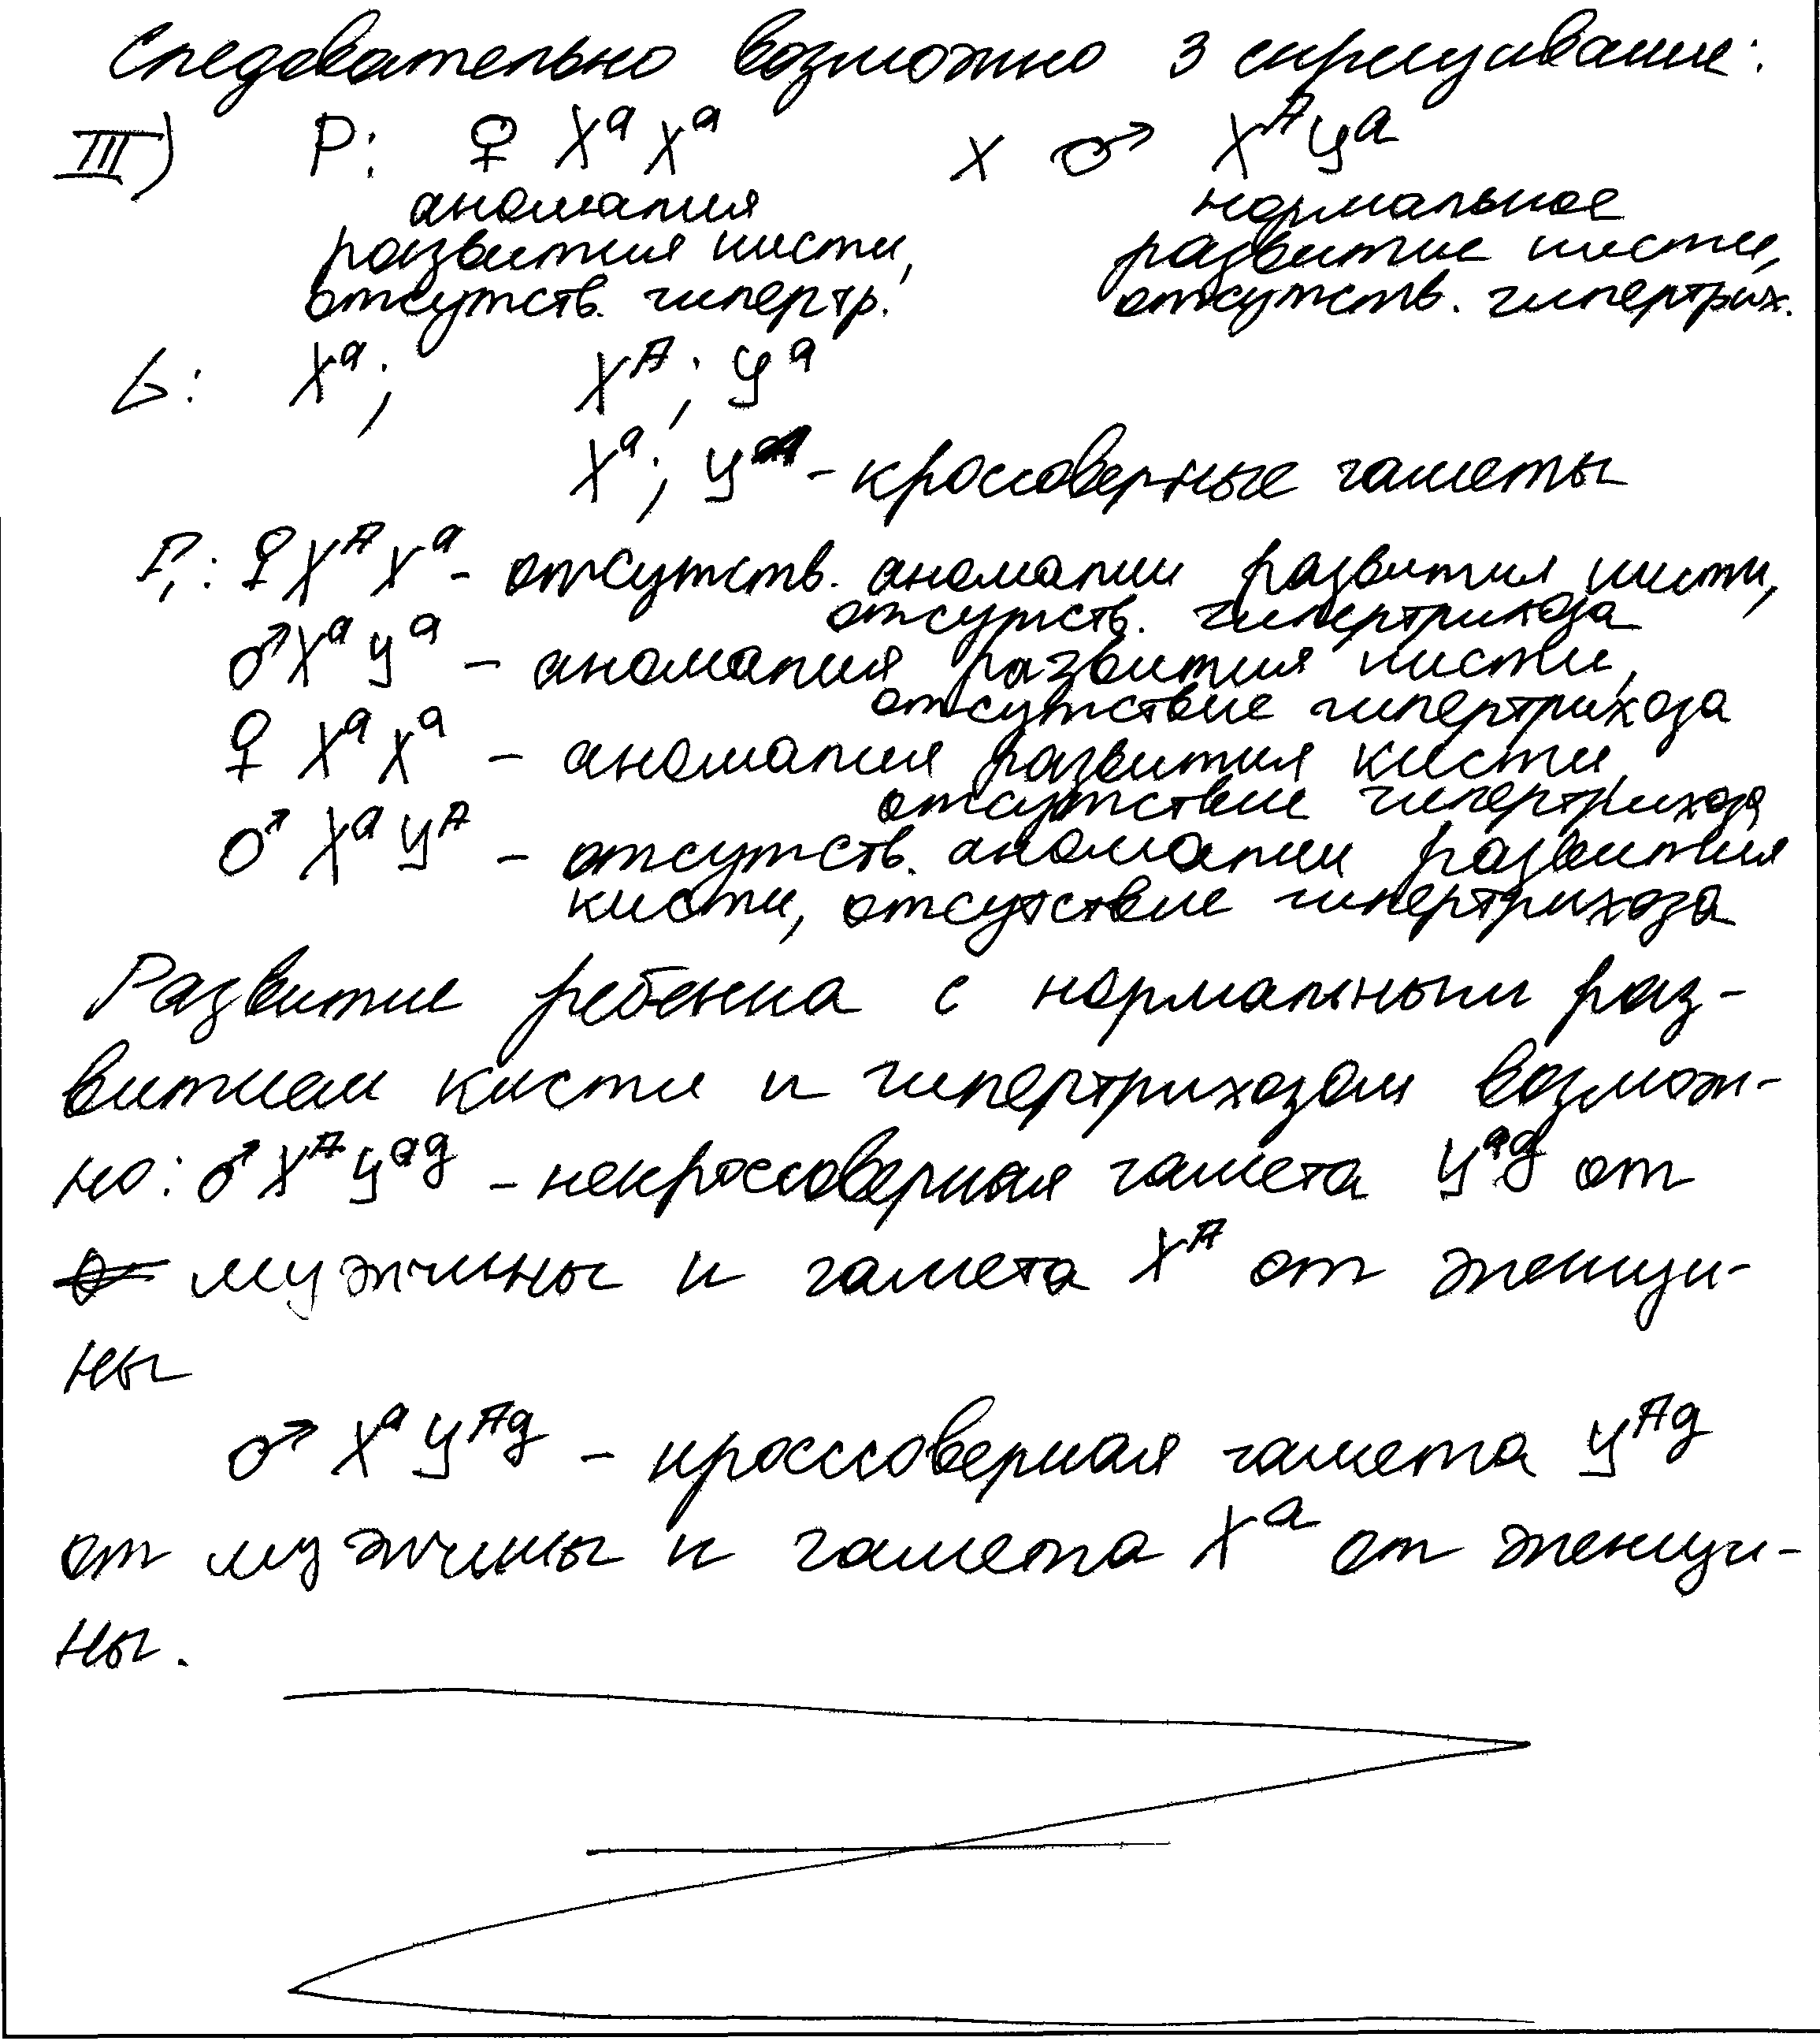 Следовательно возможно 3 скрещивание:
III) P: ♀ XᵃXᵃ x ♂ XᴬYᵃ
аномалия нормальное
развития кисти, развитие кисти,
отсутств. гипертр. отсутств. гипертрих.
G: Xᵃ; Xᴬ; Yᵃ
Xᵃ; Yᴬ - кроссоверные гаметы
F₁: ♀ XᴬXᵃ - отсутств. аномалии развития кисти,
отсутств. гипертрихоза
♂ XᵃYᵃ - аномалия развития кисти,
отсутствие гипертрихоза
♀ XᵃXᵃ - аномалия развития кисти,
отсутствие гипертрихоза
♂ XᵃYᴬ - отсутств. аномалии развития
кисти, отсутствие гипертрихоза
Развитие ребенка с нормальным раз-
витием кисти и гипертрихозом возмож-
но: ♂ XᴬYᵃᵍ - некроссоверная гамета Yᵃᵍ от
мужчины и гамета Xᴬ от женщи-
ны
♂ XᵃYᴬᵍ - кроссоверная гамета Yᴬᵍ
от мужчины и гамета Xᵃ от женщи-
ны.